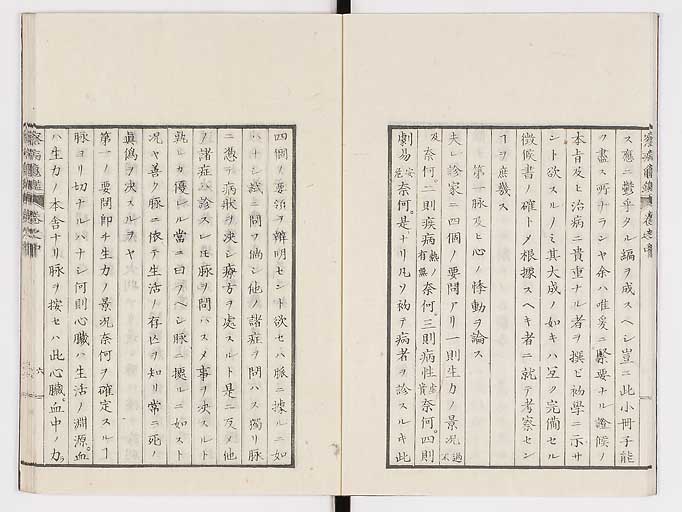 ス應ニ鬱乎タル編ヲ成スヘシ豈ニ此小冊子能
ク盡ス所ナランヤ余ハ唯爰ニ緊要ナル證候ノ
本肯及ヒ治病ニ貴重ナル者ヲ撰ヒ初學ニ示サ
ント欲スルノミ其大成ノ如キハ互ク完備セル
徴候書ノ確トメ根據スヘキ者ニ就テ考察セン
ヿヲ庶幾ス
第一脉及ヒ心ノ悸動ヲ論ス
夫レ診家ニ四個ノ要問アリ一則生力ノ景況過不
及奈何。二則疾病熱ノ有無奈何。三則病性虚實奈何。四則
劇易安危奈何。是ナリ凡ソ初テ病者ヲ診スルキ此
四個ノ要領ヲ辨明セント欲セハ脈ニ據ルニ如
ハナシ或ニ問フ倘シ他ノ諸症ヲ問ハス獨リ脉
ニ憑テ病狀ヲ決シ療方ヲ處スルト是ニ反メ他
ノ諸症ハ診スレ𪜈脉ヲ問ハスメ事ヲ決スルト
孰レカ優レル當ニ曰フヘシ脈ニ據ルニ如スト
況ヤ善ク脈ニ依テ生活ノ存亡ヲ知リ常ニ死ノ
眞僞ヲ決スルヲヤ
第一ノ要問即チ生力ノ景況奈何ヲ確定スルヿ
脉ヨリ切ナルハナシ何則心臓ハ生活ノ淵源。血
ハ生力ノ本舎ナリ脉ヲ按セハ此心臓。血中ノ力。
六